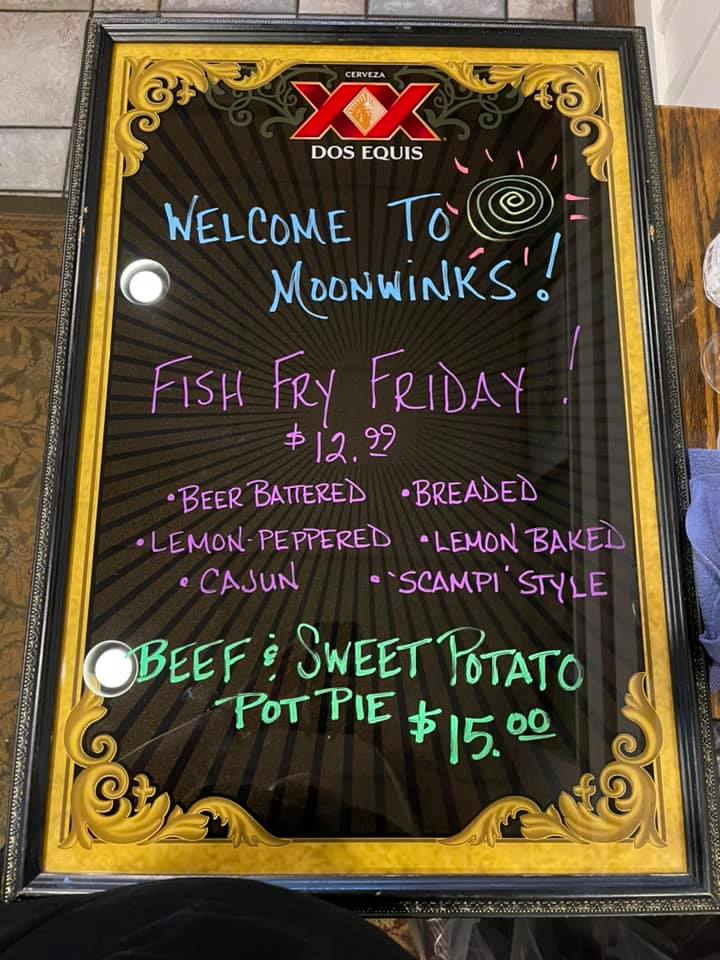 CERVEZA
XX
DOS EQUIS
WELCOME TO
MOONWINKS!
FISH FRY FRIDAY!
$12.99
•BEER BATTERED •BREADED
•LEMON-PEPPERED •LEMON BAKED
•CAJUN •'SCAMPI' STYLE
BEEF & SWEET POTATO
POT PIE $15.00